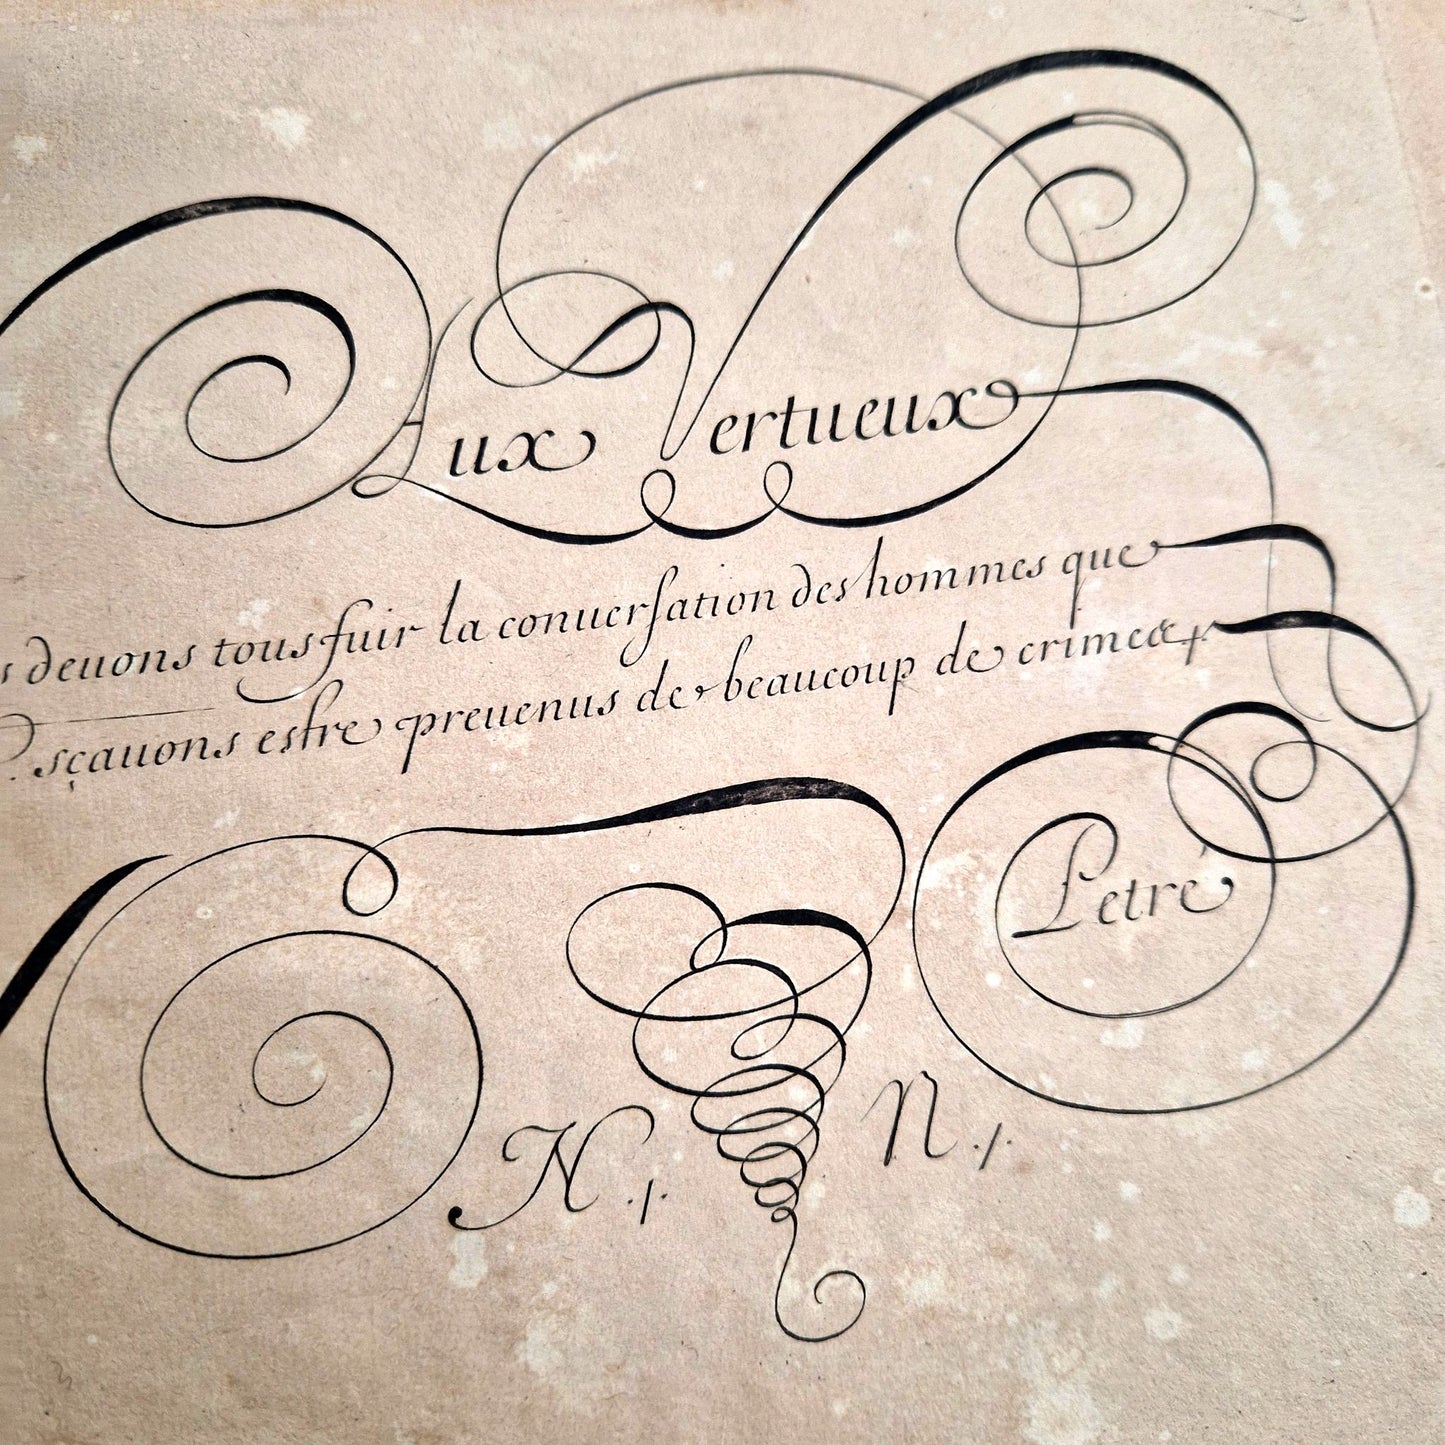 Aux Vertueux
s deuons tous fuir la conuersation des hommes que
sçauons estre preuenus de beaucoup de crimes
Petré
N ./. N ./.